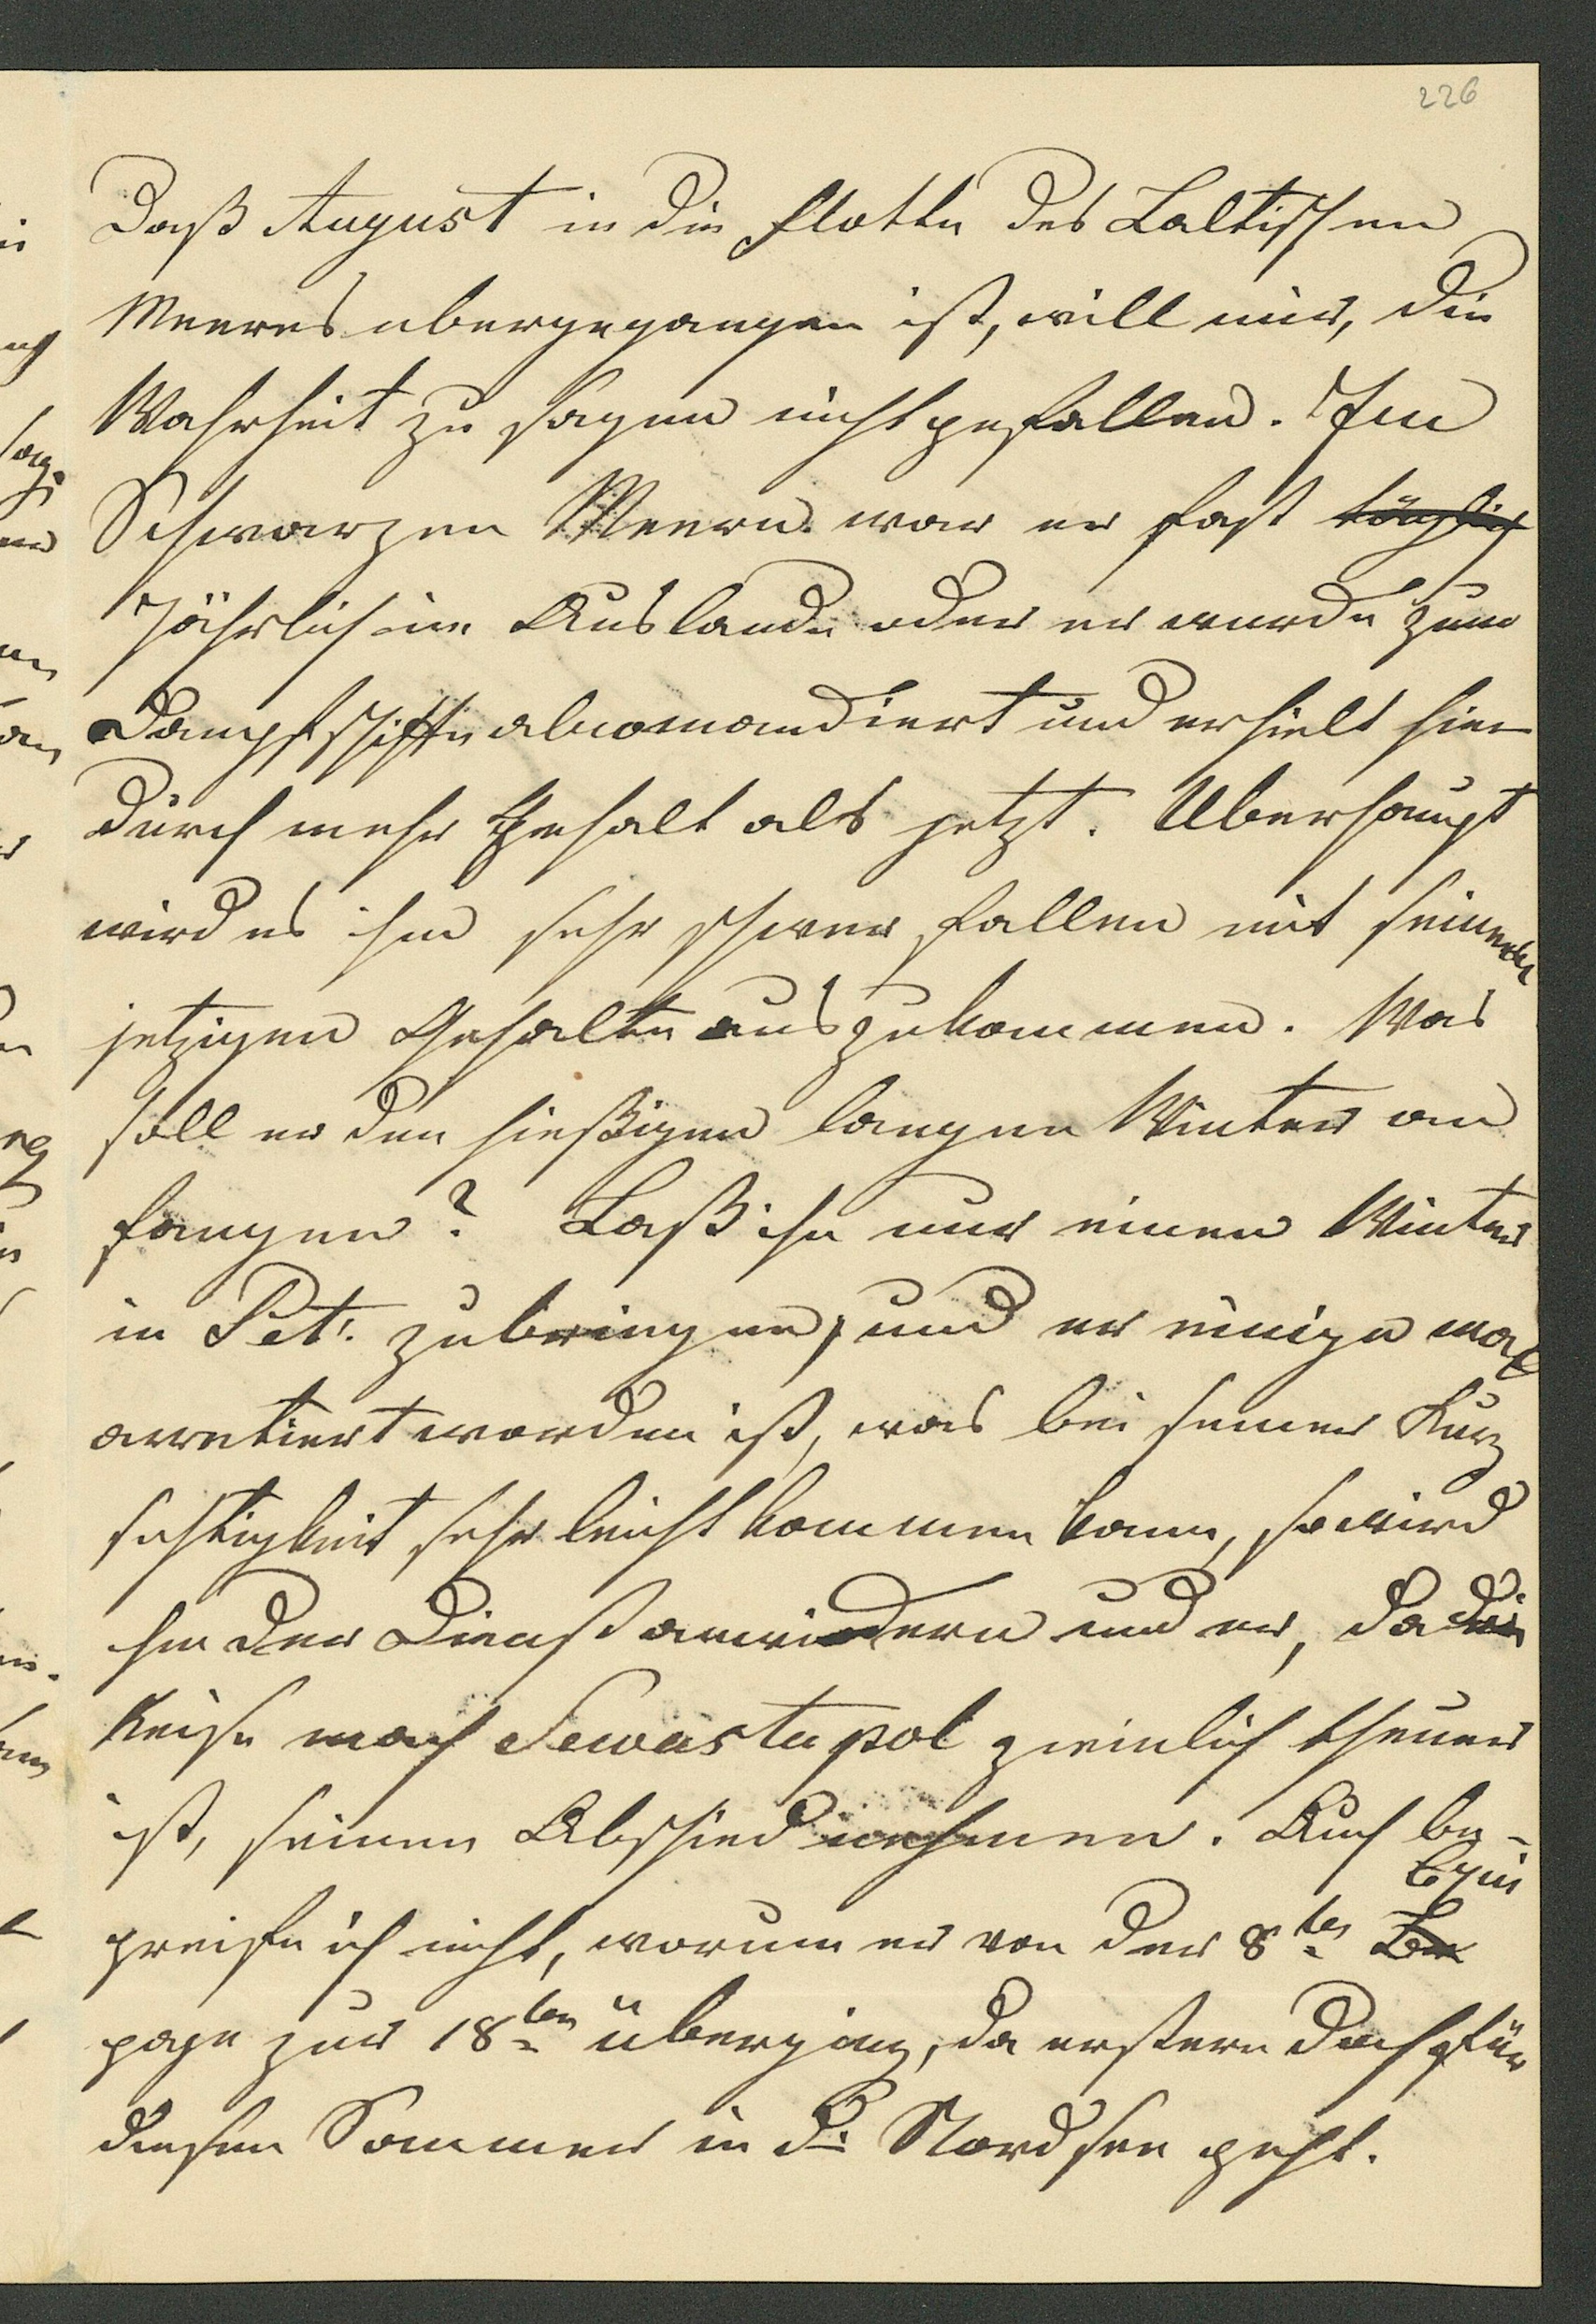 226
Daß August in die Flotte des Baltischen
Meeres ubergegangen ist, will mir, die
Wahrheit zu sagen nicht gefallen. Im
Schwarzen Meere war er fast täglich
jährlich im Auslande oder er wurde zum
Dampfschiffe abcomandiert und erhielt hier
durch mehr Gehalt als jetzt. Uberhaupt
wird es ihm sehr schwer fallen mit seinem
jetzigen Gehalte auszukommen. Was
soll er den hießigen langen Winter an
fangen? Laß ihn nur einen Winter
in Pet. zubringen, und er einige mal
arretiert worden ist, was bei seiner Kurz
sichtigkeit sehr leicht kommen kann, so wird
ihm der Dienst anwiedern und er, da die
Reise nach Sewastopol ziemlich theuer
ist, seinen Abschied nehmen. Auch be-
greife ich nicht, warum er von der 8ten Equi
page zur 18ten überging, da erstere doch für
diesen Sommer in die Nordsee geht.